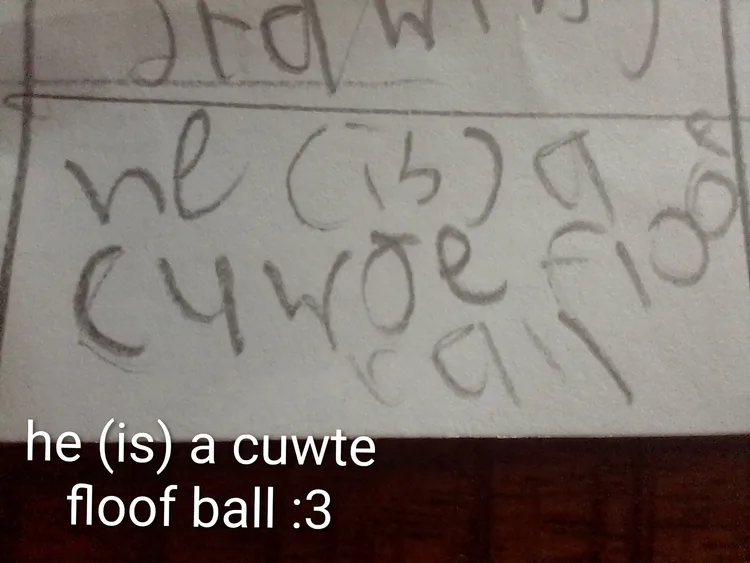 he (is) a
cuwoe floof
ball
he (is) a cuwte
floof ball :3